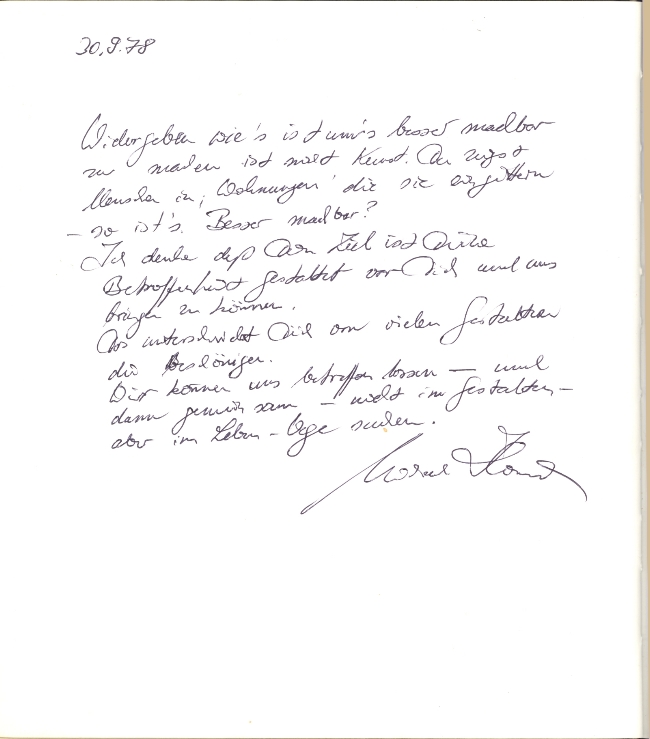 30.9.78
Widergeben wie's ist um's besser machbar
zu machen ist nicht Kunst. Du zeigst
Menschen in 'Wohnungen' die sie eingittern
– so ist's. Besser machbar?
Ich denke daß Dein Ziel ist Deine
Betroffenheit gestaltet vor Dich und uns
bringen zu können.
Das unterscheidet Dich von vielen Gestaltern
die beschönigen.
Wir können uns betreffen lassen – und
dann gemeinsam – nicht im Gestalten –
aber im Leben – Wege suchen.